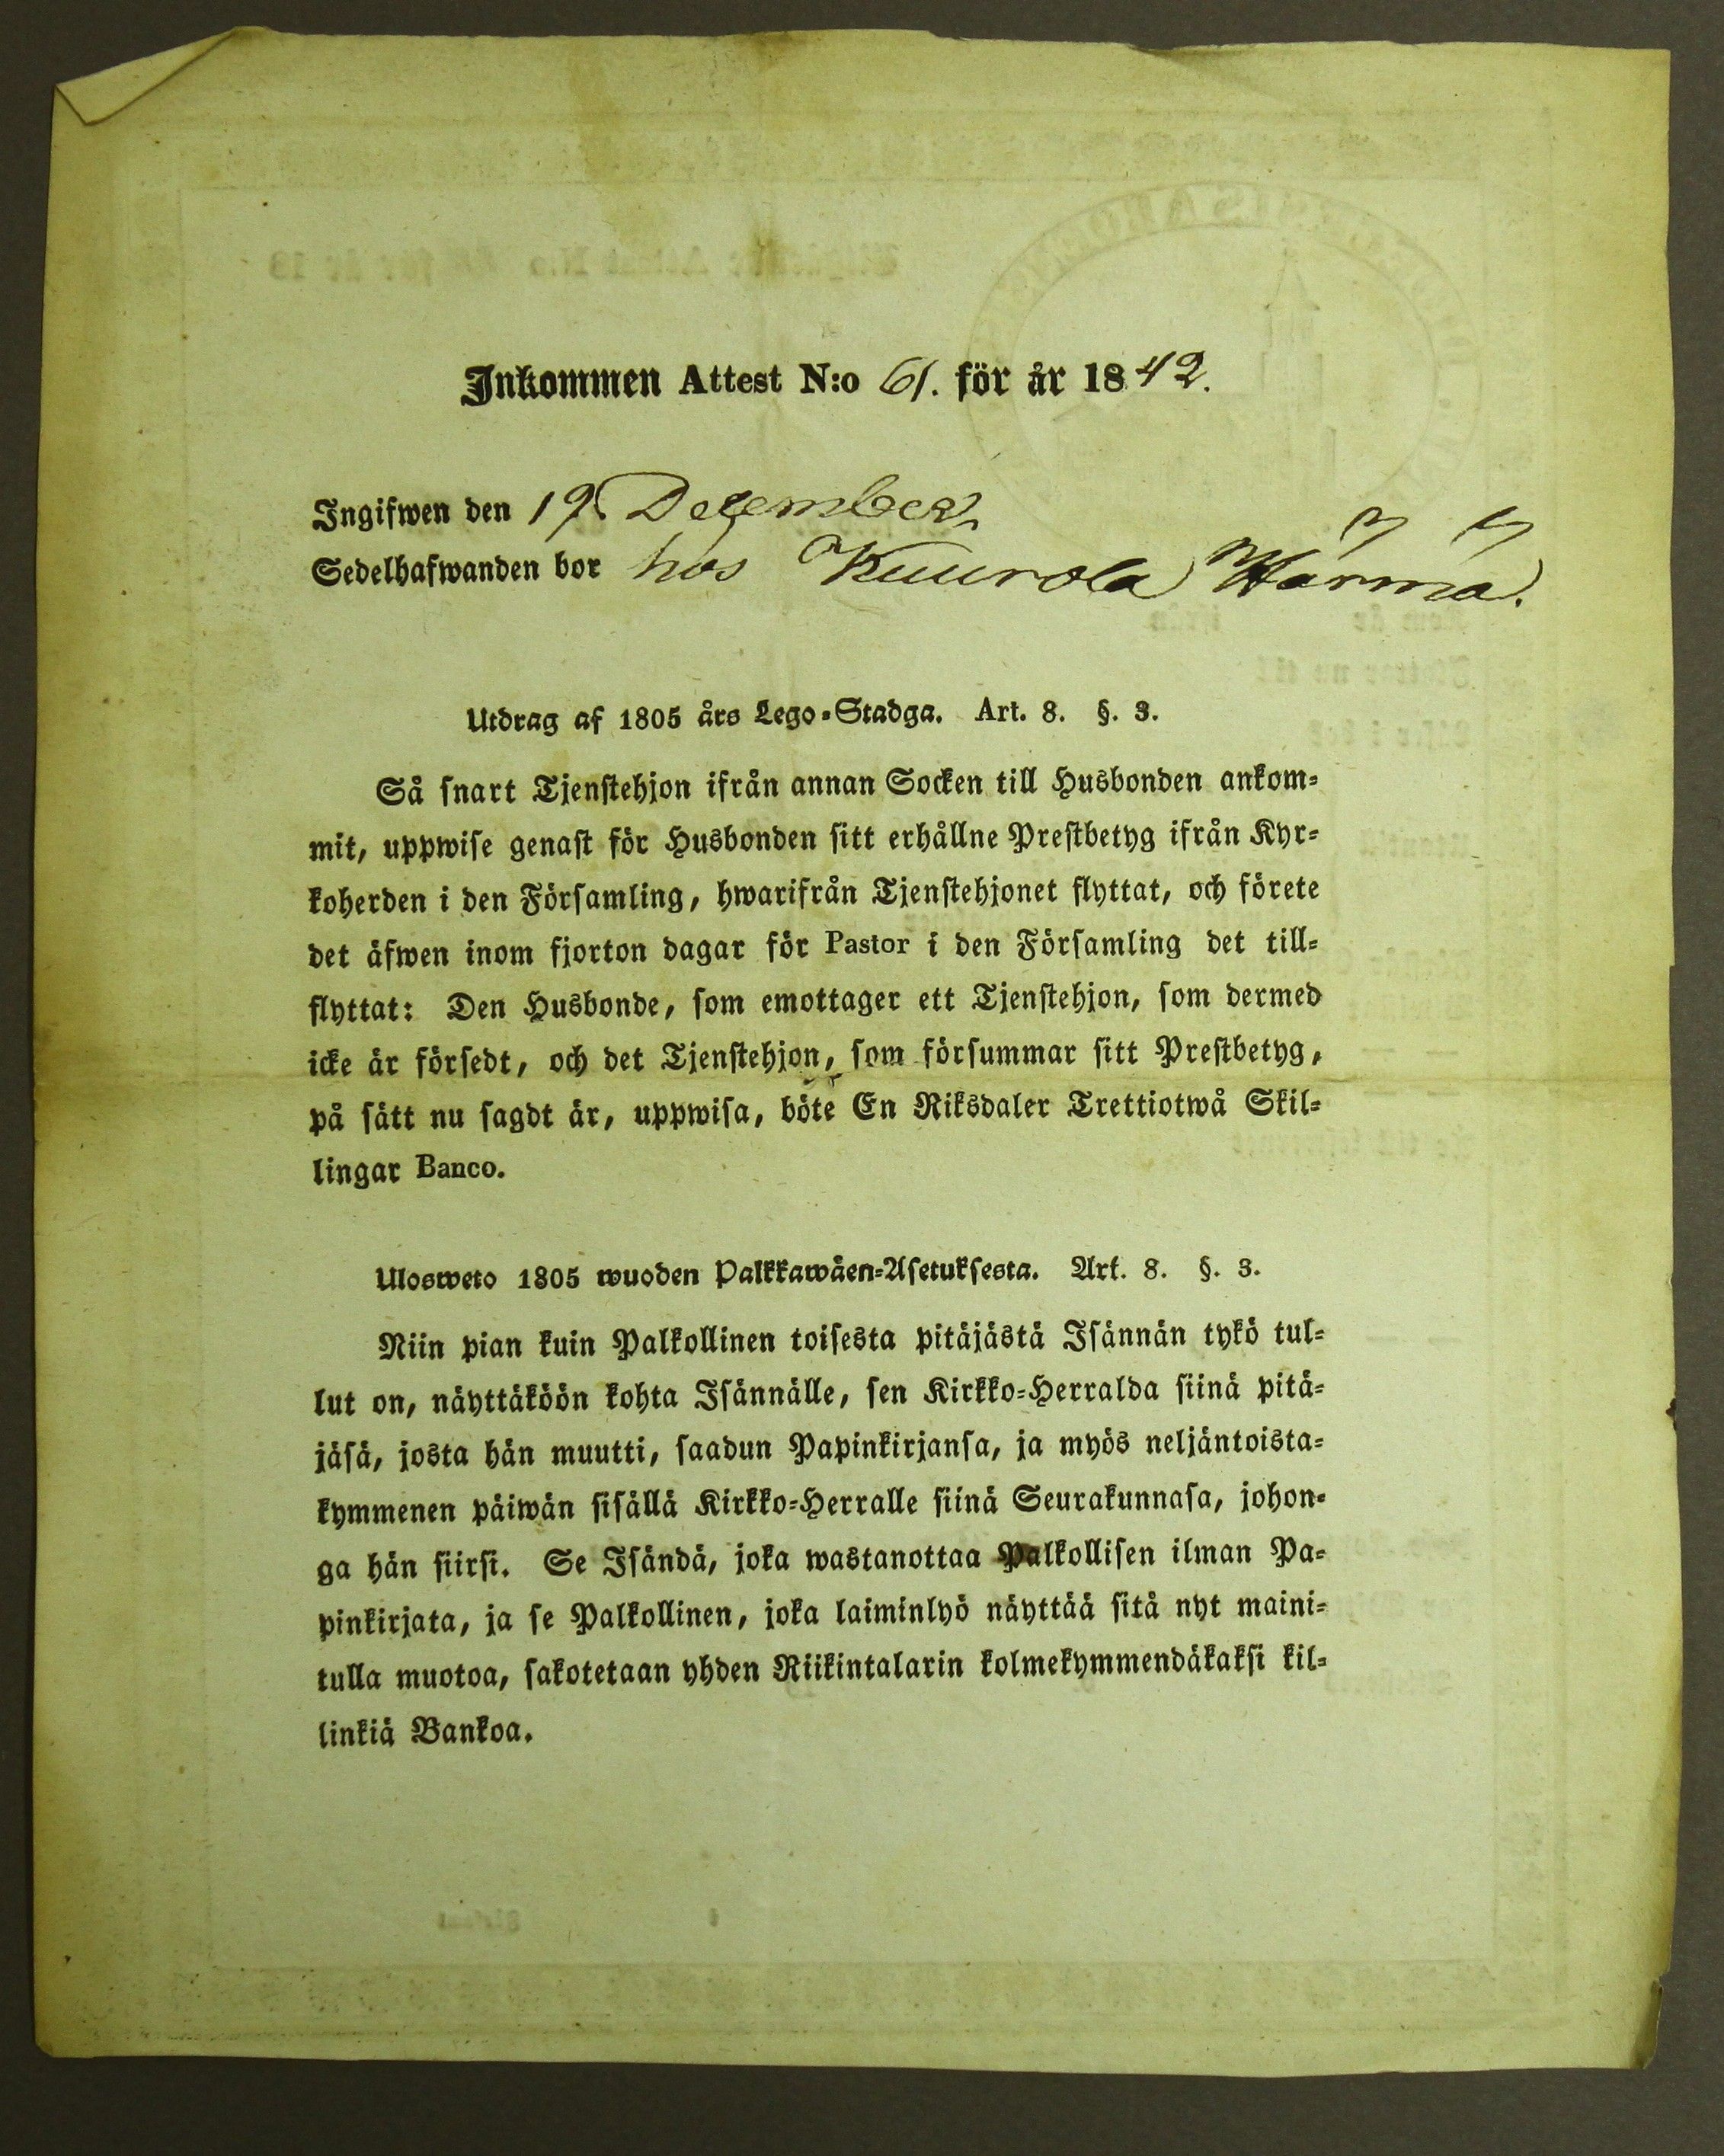 Inkommen Attest N:o 61. för år 1842.
Ingifwen den 19 December
Sedelhafwanden bor hos Kuurola Härmä.
Utdrag af 1805 års Lego-Stadga. Art. 8. §. 3.
Så snart Tjenstehjon ifrån annan Socken till Husbonden ankom-
mit, uppwise genast för Husbonden sitt erhållne Prestbetyg ifrån Kyr-
koherden i den Församling, hwarifrån Tjenstehjonet flyttat, och förete
det äfwen inom fjorton dagar för Pastor i den Församling det till-
flyttat: Den Husbonde, som emottager ett Tjenstehjon, som dermed
icke är försedt, och det Tjenstehjon, som försummar sitt Prestbetyg,
på sätt nu sagdt är, uppwisa, böte En Riksdaler Trettiotwå Skil-
lingar Banco.
Ulosweto 1805 wuoden Palkkawäen-Asetuksesta. Art. 8. §. 3.
Niin pian kuin Palkollinen toisesta pitäjästä Isännän tykö tul-
lut on, näyttäköön kohta Isännälle, sen Kirkko-Herralda siinä pitä-
jäsä, josta hän muutti, saadun Papinkirjansa, ja myös neljäntoista-
kymmenen päiwän sisällä Kirkko-Herralle siinä Seurakunnasa, johon-
ga hän siirsi. Se Isändä, joka wastanottaa Palkollisen ilman Pa-
pinkirjata, ja se Palkollinen, joka laiminlyö näyttää sitä nyt maini-
tulla muotoa, sakotetaan yhden Riikintalarin kolmekymmendäkaksi kil-
linkiä Bankoa.